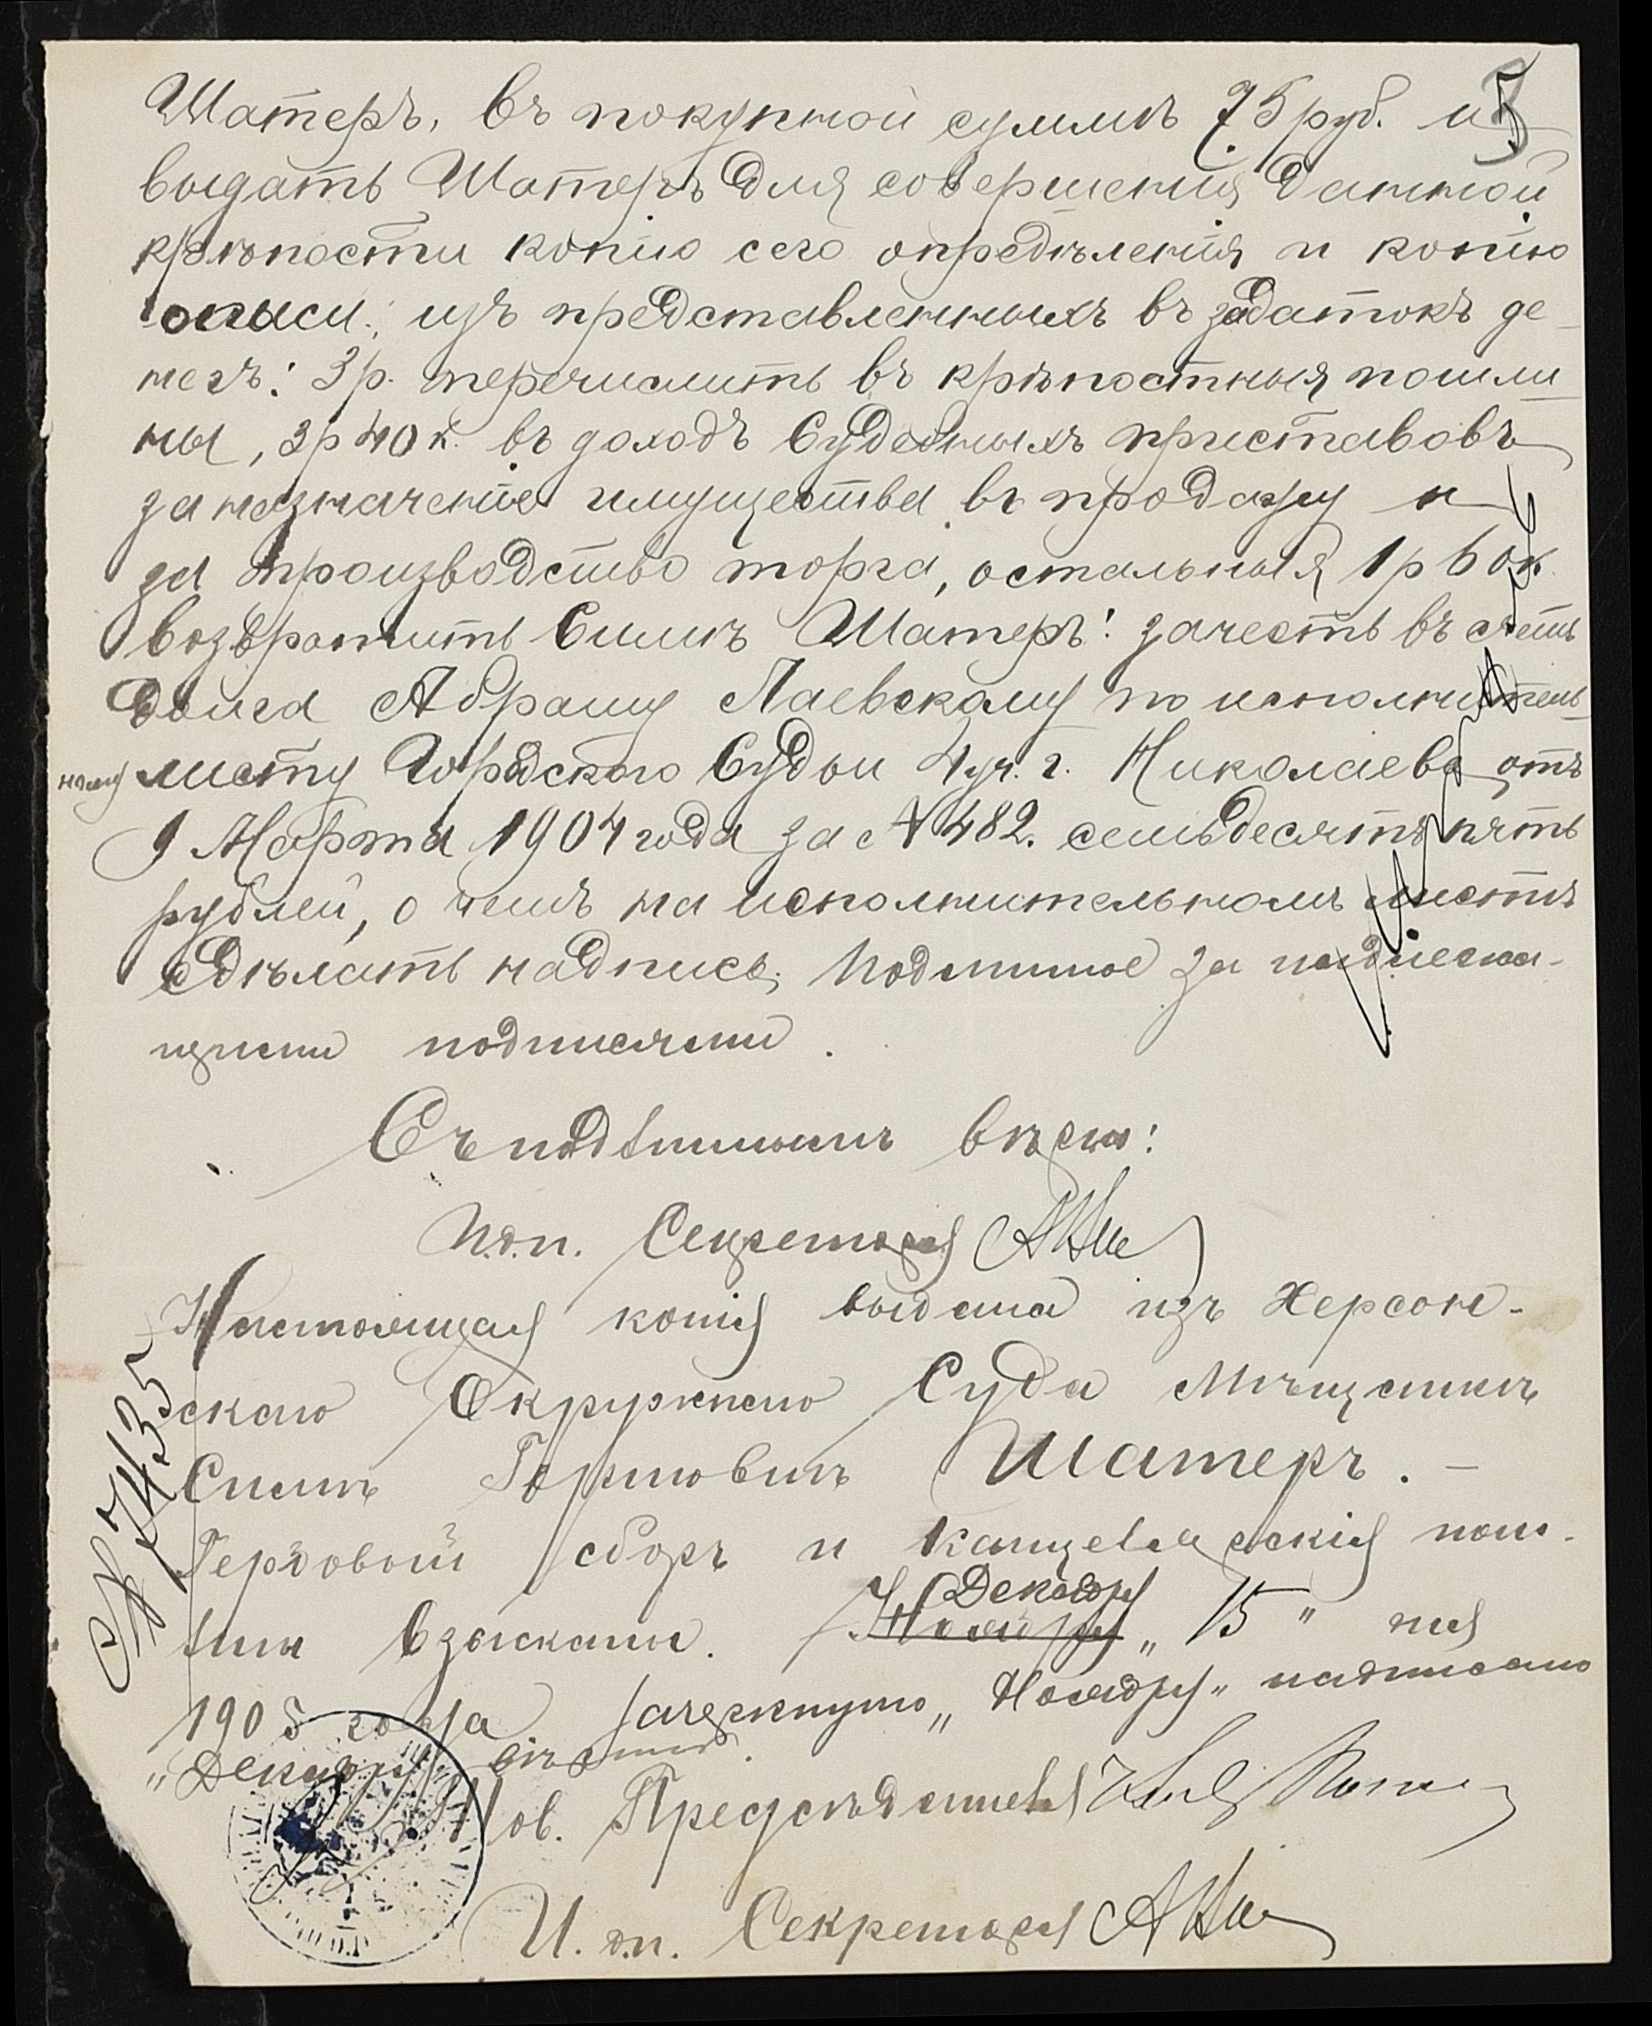 Шатеръ, въ покупной суммѣ 75 руб. и 5
выдать Шатеръ для совершенія данной
крѣпости копію сего опредѣленія и копію
описи; изъ представленныхъ въ задатокъ де-
негъ: 3 р. перечислить въ крѣпостныя пошли-
ны, 3 р 40 к. въ доходъ Судебныхъ приставовъ
за назначеніе имущества въ продажу и
за производство торга, остальныя 1 р 60 к.
возвратить Симѣ Шатеръ: зачесть въ счетъ
долга Абраму Лаевскому по исполнитель-
ному листу Городского Судьи 4 уч. г. Николаева отъ
9 Марта 1904 года за № 482. семьдесятъ пять
рублей, о чемъ на исполнительномъ листѣ
сдѣлать надпись. Подлинное за надлежа-
щими подписями.
Съ подлиннымъ вѣрно:
И.д.п. Секретаря
Настоящая копія выдана изъ Херсон-
скаго Окружнаго Суда Мѣщанкѣ
Симѣ Шатеръ. —
Гербовый сборъ и канцелярскія пош-
лины взысканы. Ноября Декабря „ 15 " дня
1905 года Зачеркнуто „ Ноября " надписано
„ Декабря " вѣрно.
№ 7435
Тов. Предсѣдателя
И. д.п. Секретаря